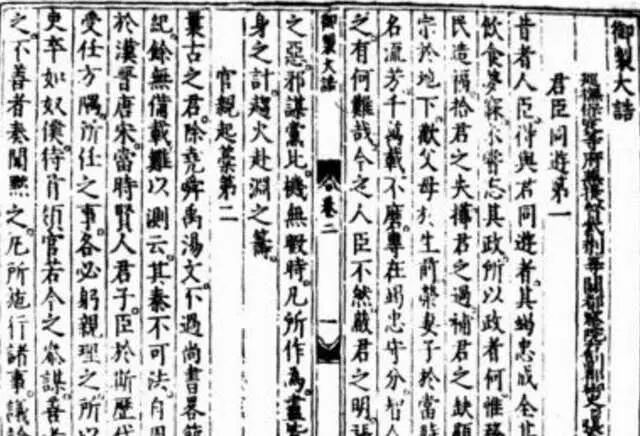 御製大誥
君臣同遊第一
昔者人臣得與君同遊者其竭忠成全其
飲食夢寐不嘗忘其政所以政者何惟務
民造福拾君之失撙君之過補君之缺顯
宗於地下歡父母於生前榮妻子於當時
名流芳千萬載不磨專在竭忠守分智人
之有何難哉今之人臣不然蔽君之明張
御製大誥
卷二
一
之惡邪謀黨比機無暇時凡所作為盡皆
身之計趨火赴淵之籌
官親起藁第二
曩古之君除堯舜禹湯文不過尚書畧範
記餘無備載難以測云其秦不可法自周
於漢晉唐宋當時賢人君子臣於斯歷代
受任方隅所任之事各必躬親理之所以
吏卒如奴僕待首領官若今之叅謀善者
之不善者奏聞黙之凡所施行諸事議論